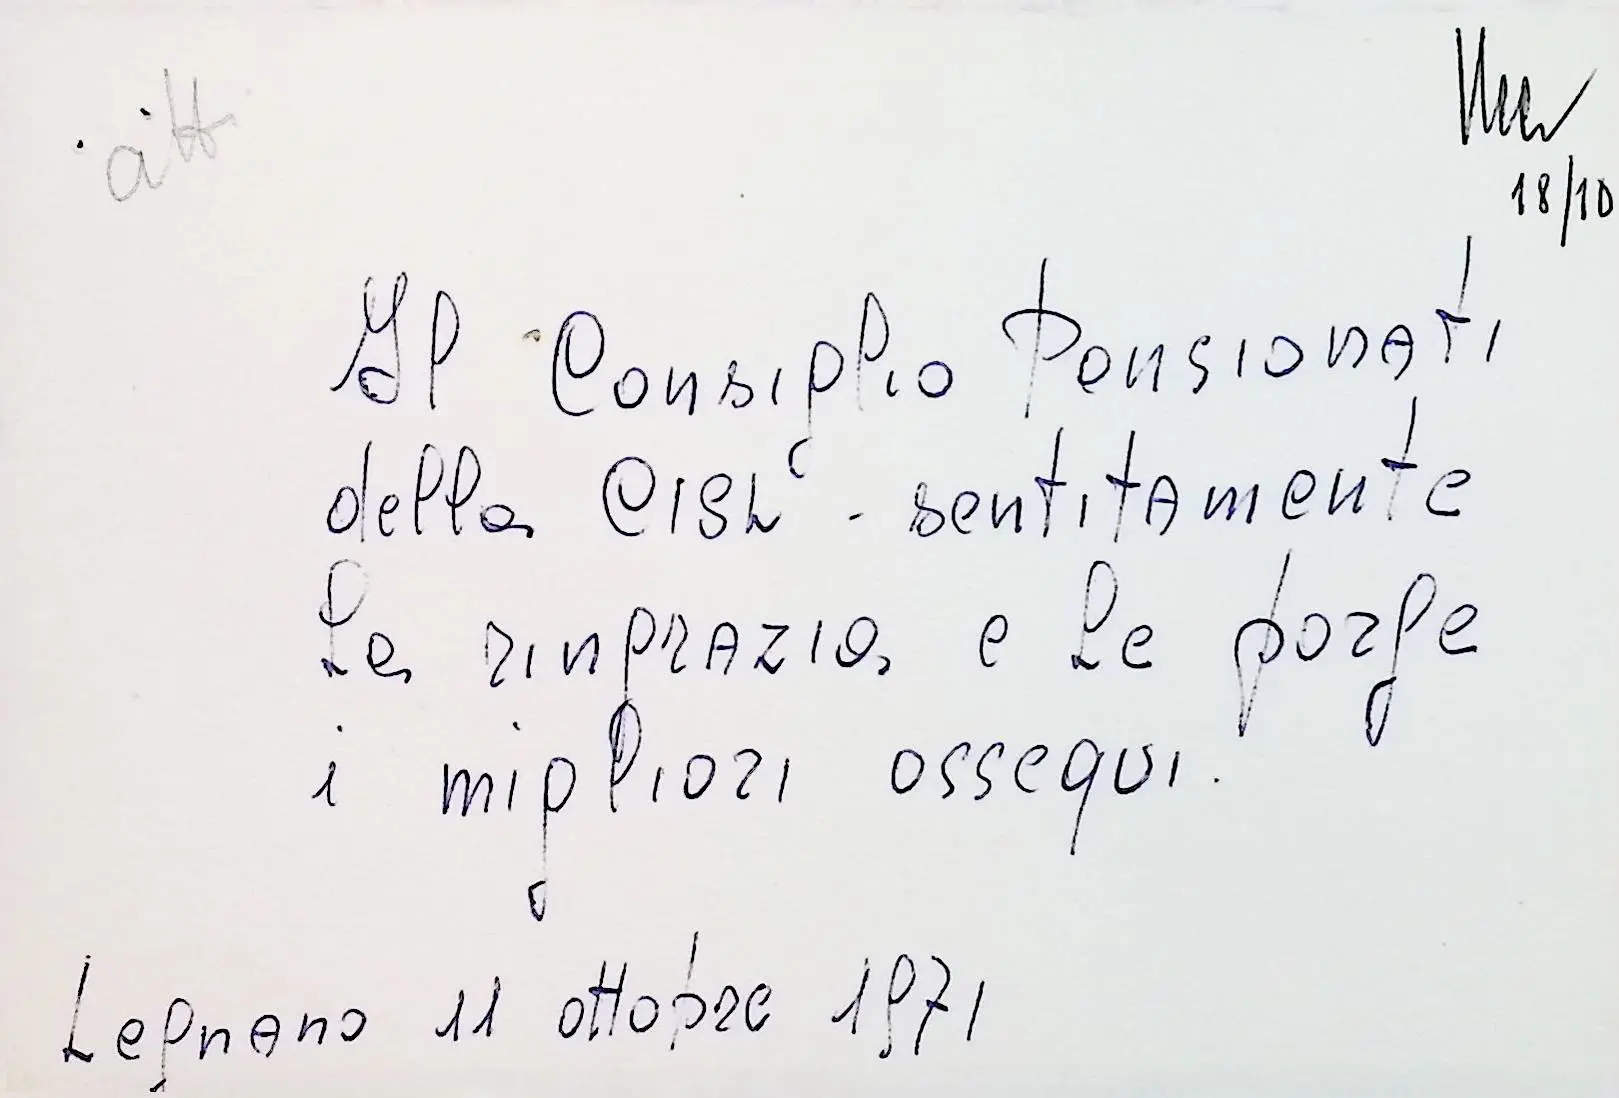 18/10
Il Consiglio Pensionati
della CISL - sentitamente
La ringrazia e Le porge
i migliori ossequi.
Legnano 11 ottobre 1971